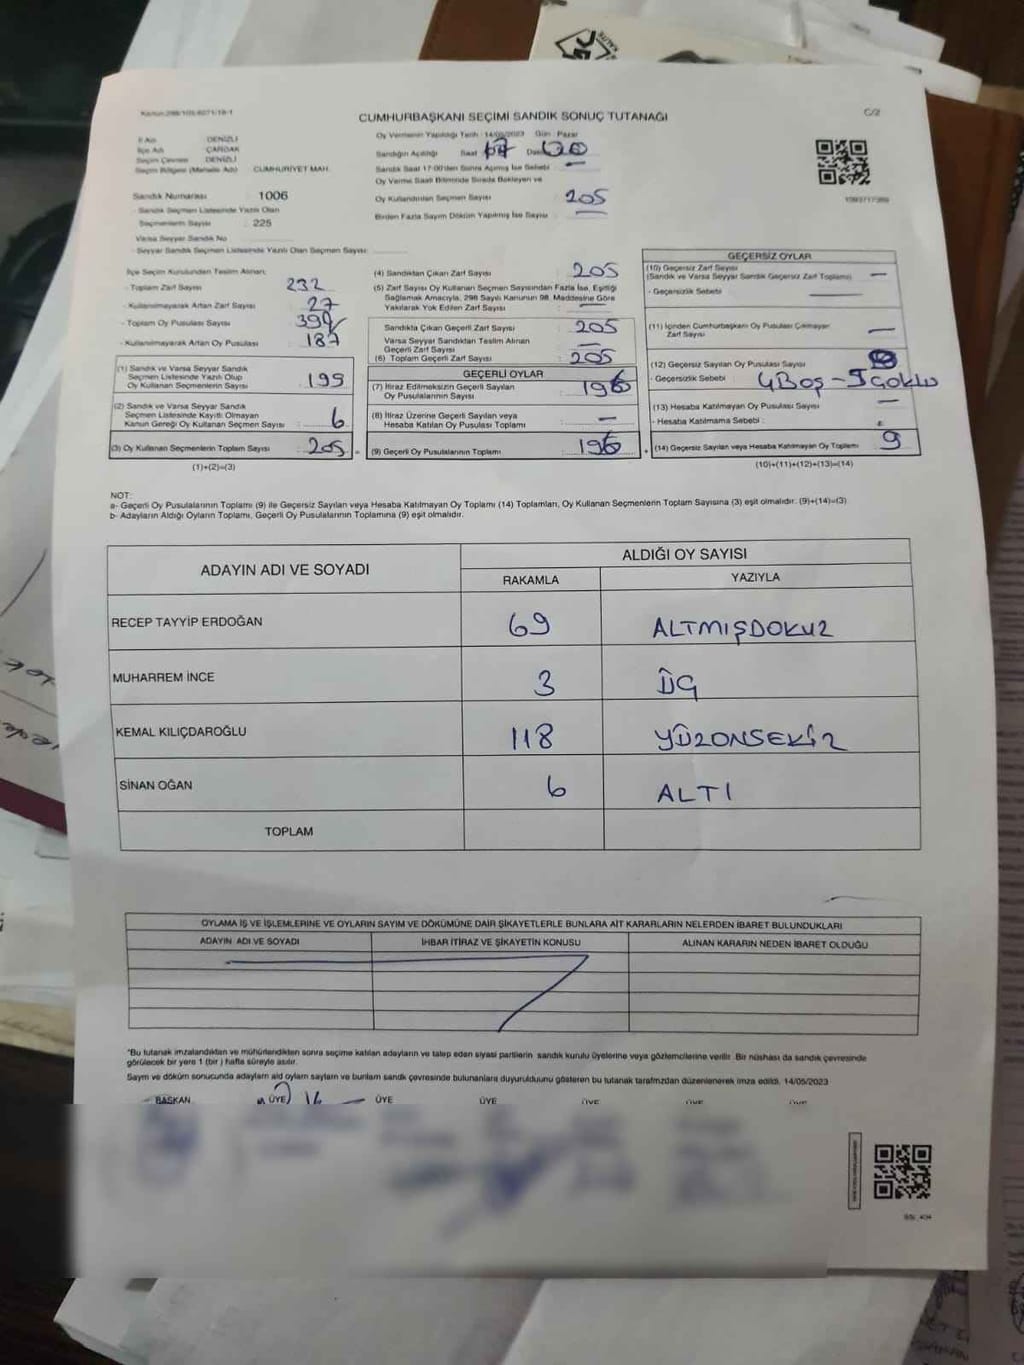 CUMHURBAŞKANI SEÇİMİ SANDIK SONUÇ TUTANAĞI
C/2
İli Adı DENİZLİ
İlçe Adı ÇARDAK
Seçim Çevresi DENİZLİ
Seçim Bölgesi (Mahalle Adı) CUMHURİYET MAH.
Sandık Numarası 1006
Sandık Seçmen Listesinde Yazılı Olan
Seçmenlerin Sayısı : 225
Varsa Seyyar Sandık No
Seyyar Sandık Seçmen Listesinde Yazılı Olan Seçmen Sayısı
Oy Vermenin Yapıldığı Tarih : 14/05/2023 Gün : Pazar
Sandığın Açıldığı Saat 17 Dakika 00
Sandık Saat 17:00'den Sonra Açılmış İse Sebebi
Oy Verme Saati Bitiminde Sırada Bekleyen ve
Oy Kullandırılan Seçmen Sayısı 205
Birden Fazla Sayım Döküm Yapılmış İse Sayısı
İlçe Seçim Kurulundan Teslim Alınan;
- Toplam Zarf Sayısı 232
- Kullanılmayarak Artan Zarf Sayısı : 27
- Toplam Oy Pusulası Sayısı
- Kullanılmayarak Artan Oy Pusulası : 187
(1) Sandık ve Varsa Seyyar Sandık
Seçmen Listesinde Yazılı Olup
Oy Kullanan Seçmenlerin Sayısı : 199
(2) Sandık ve Varsa Seyyar Sandık
Seçmen Listesinde Kayıtlı Olmayan
Kanun Gereği Oy Kullanan Seçmen Sayısı : 6
(3) Oy Kullanan Seçmenlerin Toplam Sayısı : 205
(1)+(2)=(3)
(4) Sandıktan Çıkan Zarf Sayısı 205
(5) Zarf Sayısı Oy Kullanan Seçmen Sayısından Fazla İse, Eşitliği
Sağlamak Amacıyla, 298 Sayılı Kanunun 98. Maddesine Göre
Yakılarak Yok Edilen Zarf Sayısı : —
Sandıkta Çıkan Geçerli Zarf Sayısı : 205
Varsa Seyyar Sandıktan Teslim Alınan
Geçerli Zarf Sayısı : —
(6) Toplam Geçerli Zarf Sayısı : 205
GEÇERLİ OYLAR
(7) İtiraz Edilmeksizin Geçerli Sayılan
Oy Pusulalarının Sayısı : 196
(8) İtiraz Üzerine Geçerli Sayılan veya
Hesaba Katılan Oy Pusulası Toplamı : —
(9) Geçerli Oy Pusulalarının Toplamı : 196
GEÇERSİZ OYLAR
(10) Geçersiz Zarf Sayısı
(Sandık ve Varsa Seyyar Sandık Geçersiz Zarf Toplamı) —
- Geçersizlik Sebebi : —
(11) İçinden Cumhurbaşkanı Oy Pusulası Çıkmayan
Zarf Sayısı —
(12) Geçersiz Sayılan Oy Pusulası Sayısı
- Geçersizlik Sebebi : 4 BOŞ - 5 ÇOKLU
(13) Hesaba Katılmayan Oy Pusulası Sayısı —
- Hesaba Katılmama Sebebi :
(14) Geçersiz Sayılan veya Hesaba Katılmayan Oy Toplamı : 9
(10)+(11)+(12)+(13)=(14)
NOT:
a- Geçerli Oy Pusulalarının Toplamı (9) ile Geçersiz Sayılan veya Hesaba Katılmayan Oy Toplamı (14) Toplamları, Oy Kullanan Seçmenlerin Toplam Sayısına (3) eşit olmalıdır. (9)+(14)=(3)
b- Adayların Aldığı Oyların Toplamı, Geçerli Oy Pusulalarının Toplamına (9) eşit olmalıdır.
ADAYIN ADI VE SOYADI ALDIĞI OY SAYISI
RAKAMLA YAZIYLA
RECEP TAYYİP ERDOĞAN 69 ALTMIŞDOKUZ
MUHARREM İNCE 3 ÜÇ
KEMAL KILIÇDAROĞLU 118 YÜZONSEKİZ
SİNAN OĞAN 6 ALTI
TOPLAM
OYLAMA İŞ VE İŞLEMLERİNE VE OYLARIN SAYIM VE DÖKÜMÜNE DAİR ŞİKAYETLERLE BUNLARA AİT KARARLARIN NELERDEN İBARET BULUNDUKLARI
ADAYIN ADI VE SOYADI İHBAR İTİRAZ VE ŞİKAYETİN KONUSU ALINAN KARARIN NEDEN İBARET OLDUĞU
*Bu tutanak imzalandıktan ve mühürlendikten sonra seçime katılan adayların ve talep eden siyasi partilerin sandık kurulu üyelerine veya gözlemcilerine verilir. Bir nüshası da sandık çevresinde
görülecek bir yere 1 (bir) hafta süreyle asılır.
Sayım ve döküm sonucunda adayların aldı oyların sayıların ve bunların sandık çevresinde bulunanlara duyurulduunu gösteren bu tutanak tarafımızdan düzenlenerek imza edildi. 14/05/2023
BAŞKAN ÜYE ÜYE ÜYE ÜYE ÜYE ÜYE